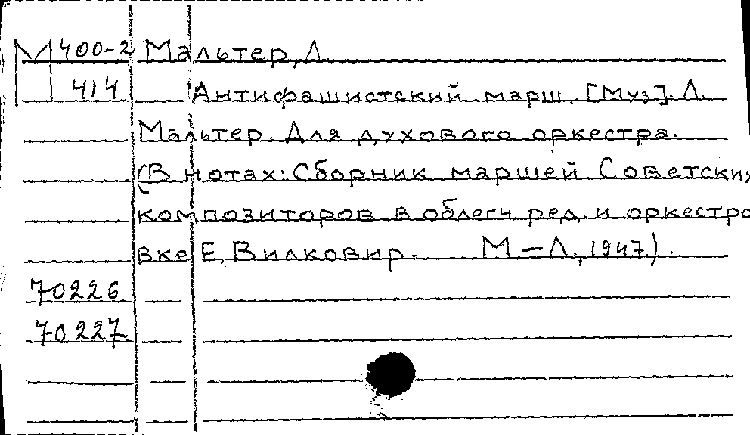 М 400-2 Мальтер, Л.
414 Антифашистский марш. [Муз]. Л.
Мальтер. Для духового оркестра.
(В нотах: Сборник маршей Советских
композиторов в облегч. ред. и оркестро
вке Е. Вилковир. М-Л, 1947).
70226
70227